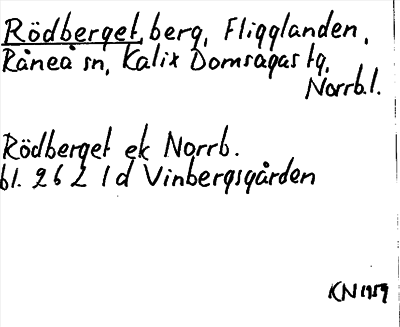 Rödberget, berg, Fligglanden,
Råneå sn, Kalix Domsagas tg,
Norrb.l.
Rödberget ek Norrb.
bl. 26 L 1 d Vinbergsgården
KN 1959